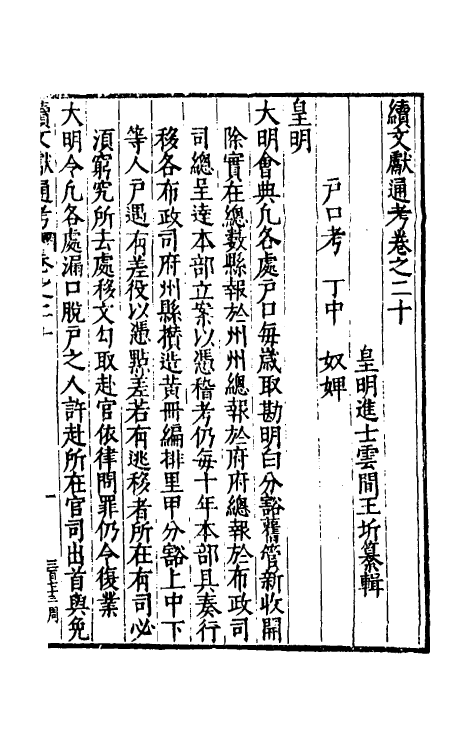 續文獻通考卷之二十
皇明進士雲間王圻纂輯
戸口考 丁中 奴婢
皇明
大明會典凡各處戸口每歲取勘明白分豁舊管新收開
除實在總數縣報於州州總報於府府總報於布政司
司總呈逹本部立案以憑稽考仍每十年本部具奏行
移各布政司府州縣攅造黃冊編排里甲分豁上中下
等人戸遇有差役以憑點差若有逃移者所在有司必
湏窮究所去處移文勾取赴官依律問罪仍令復業
大明令凡各處漏口脫戸之人許赴所在官司出首與免
續文獻通考 卷之二十 一